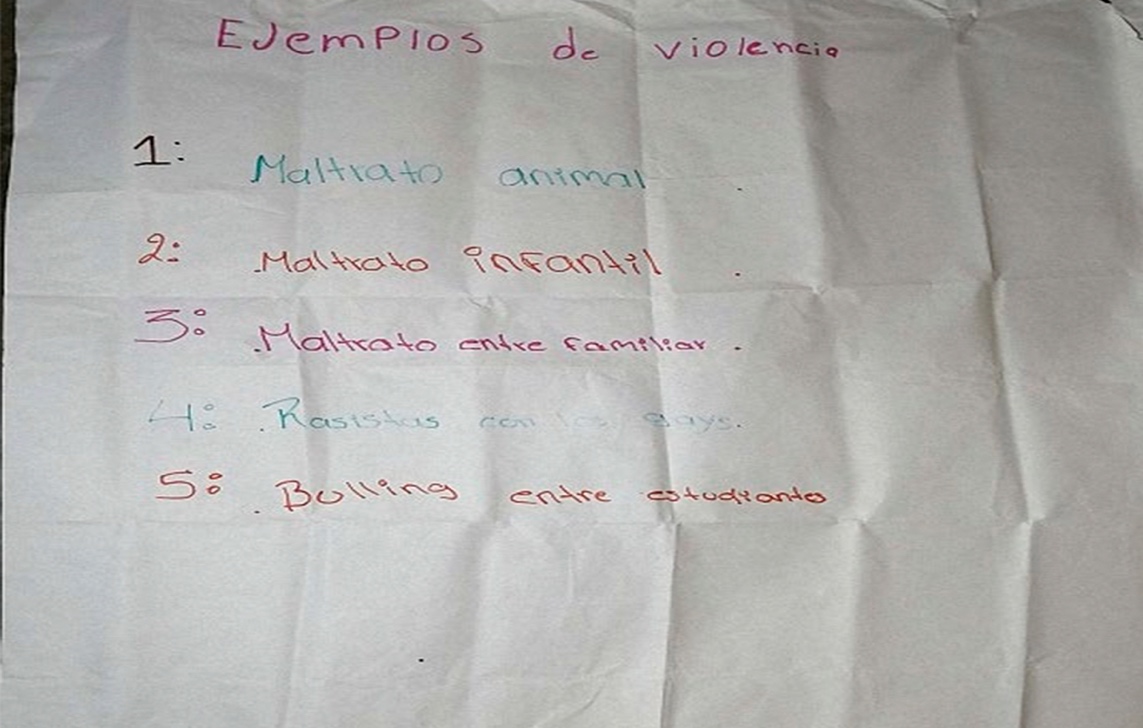 EJemPlos de violencia
1: Maltrato animal .
2: .Maltrato infantil .
3: .Maltrato entre familiar .
4: .Rasistas con los gays.
5: .Bulling entre estudiante